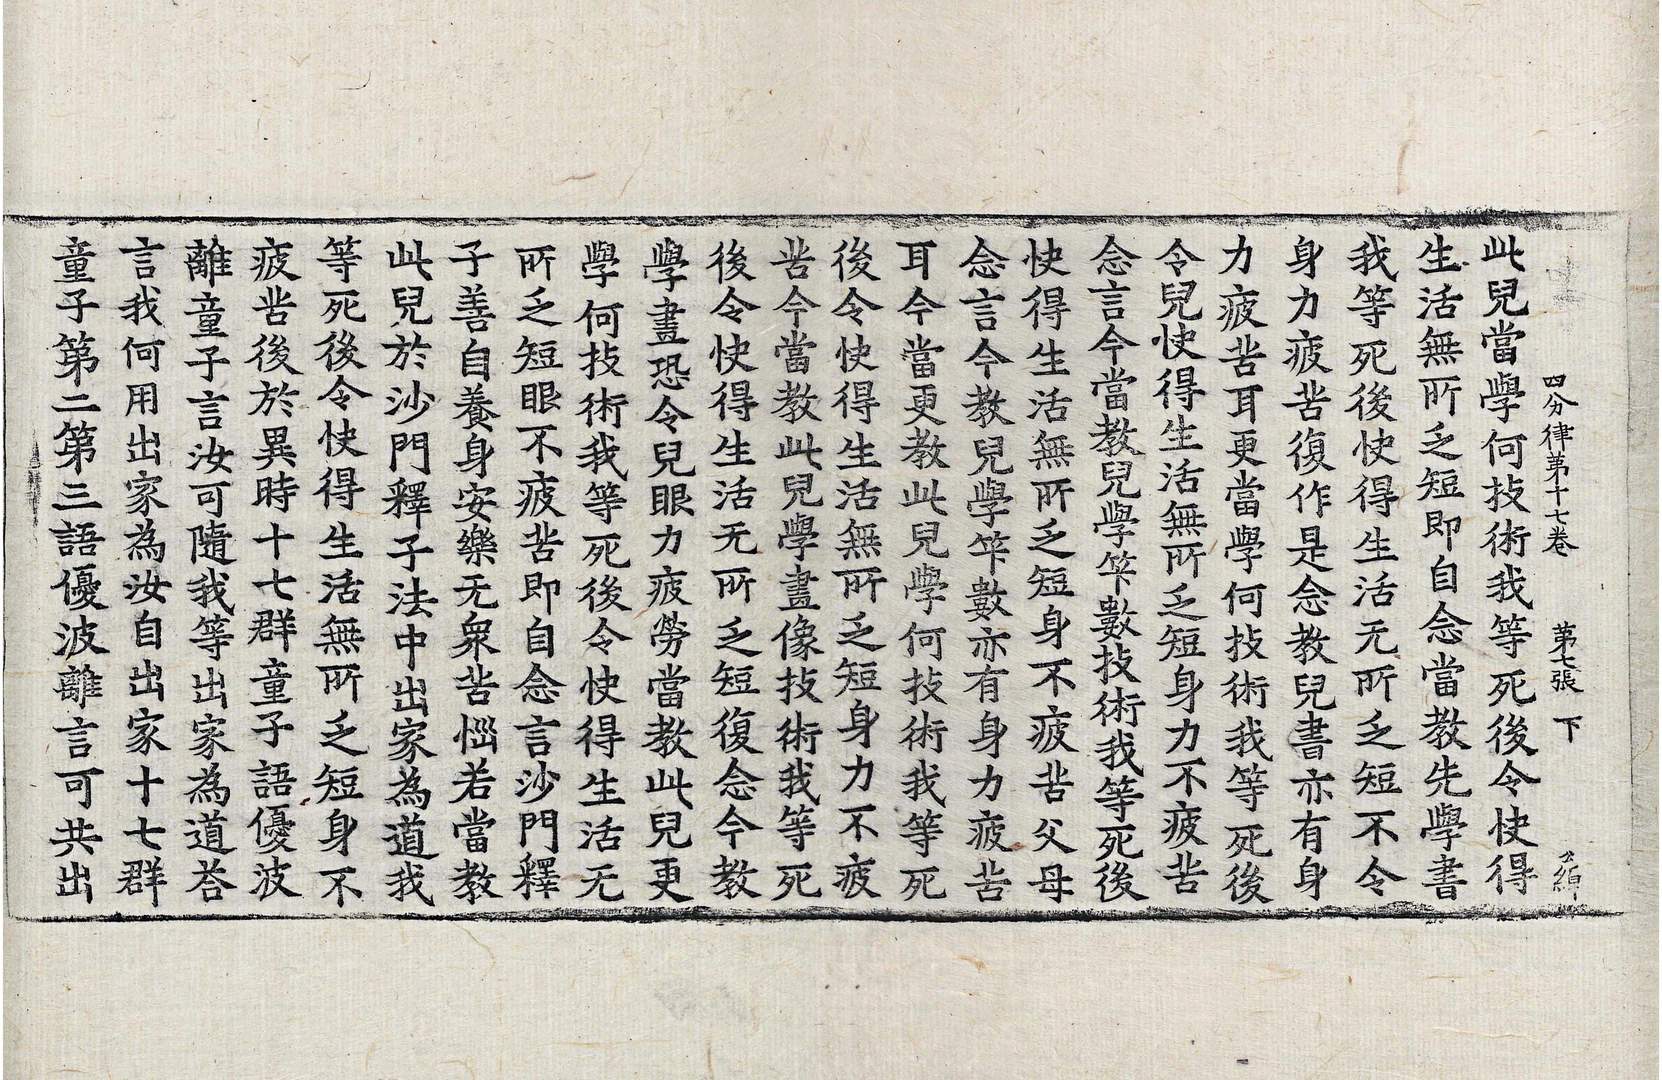 四分律苐十七卷 苐七張 下
此兒當學何技術我等死後令快得
生活無所乏短即自念當教先學書
我等死後快得生活无所乏短不令
身力疲苦復作是念教兒書亦有身
力疲苦耳更當學何技術我等死後
令兒快得生活無所乏短身力不疲苦
念言今當教兒學笇數技術我等死後
快得生活無所乏短身不疲苦父母
念言今教兒學笇數亦有身力疲苦
耳今當更教此兒學何技術我等死
後令快得生活無所乏短身力不疲
苦今當教此兒學畫像技術我等死
後令快得生活无所乏短復念今教
學畫恐令兒眼力疲勞當教此兒更
學何技術我等死後令快得生活无
所乏短眼不疲苦即自念言沙門釋
子善自養身安樂无衆苦惱若當教
此兒於沙門釋子法中出家為道我
等死後令快得生活無所乏短身不
疲苦後於異時十七群童子語優波
離童子言汝可隨我等出家為道荅
言我何用出家為汝自出家十七群
童子第二第三語優波離言可共出